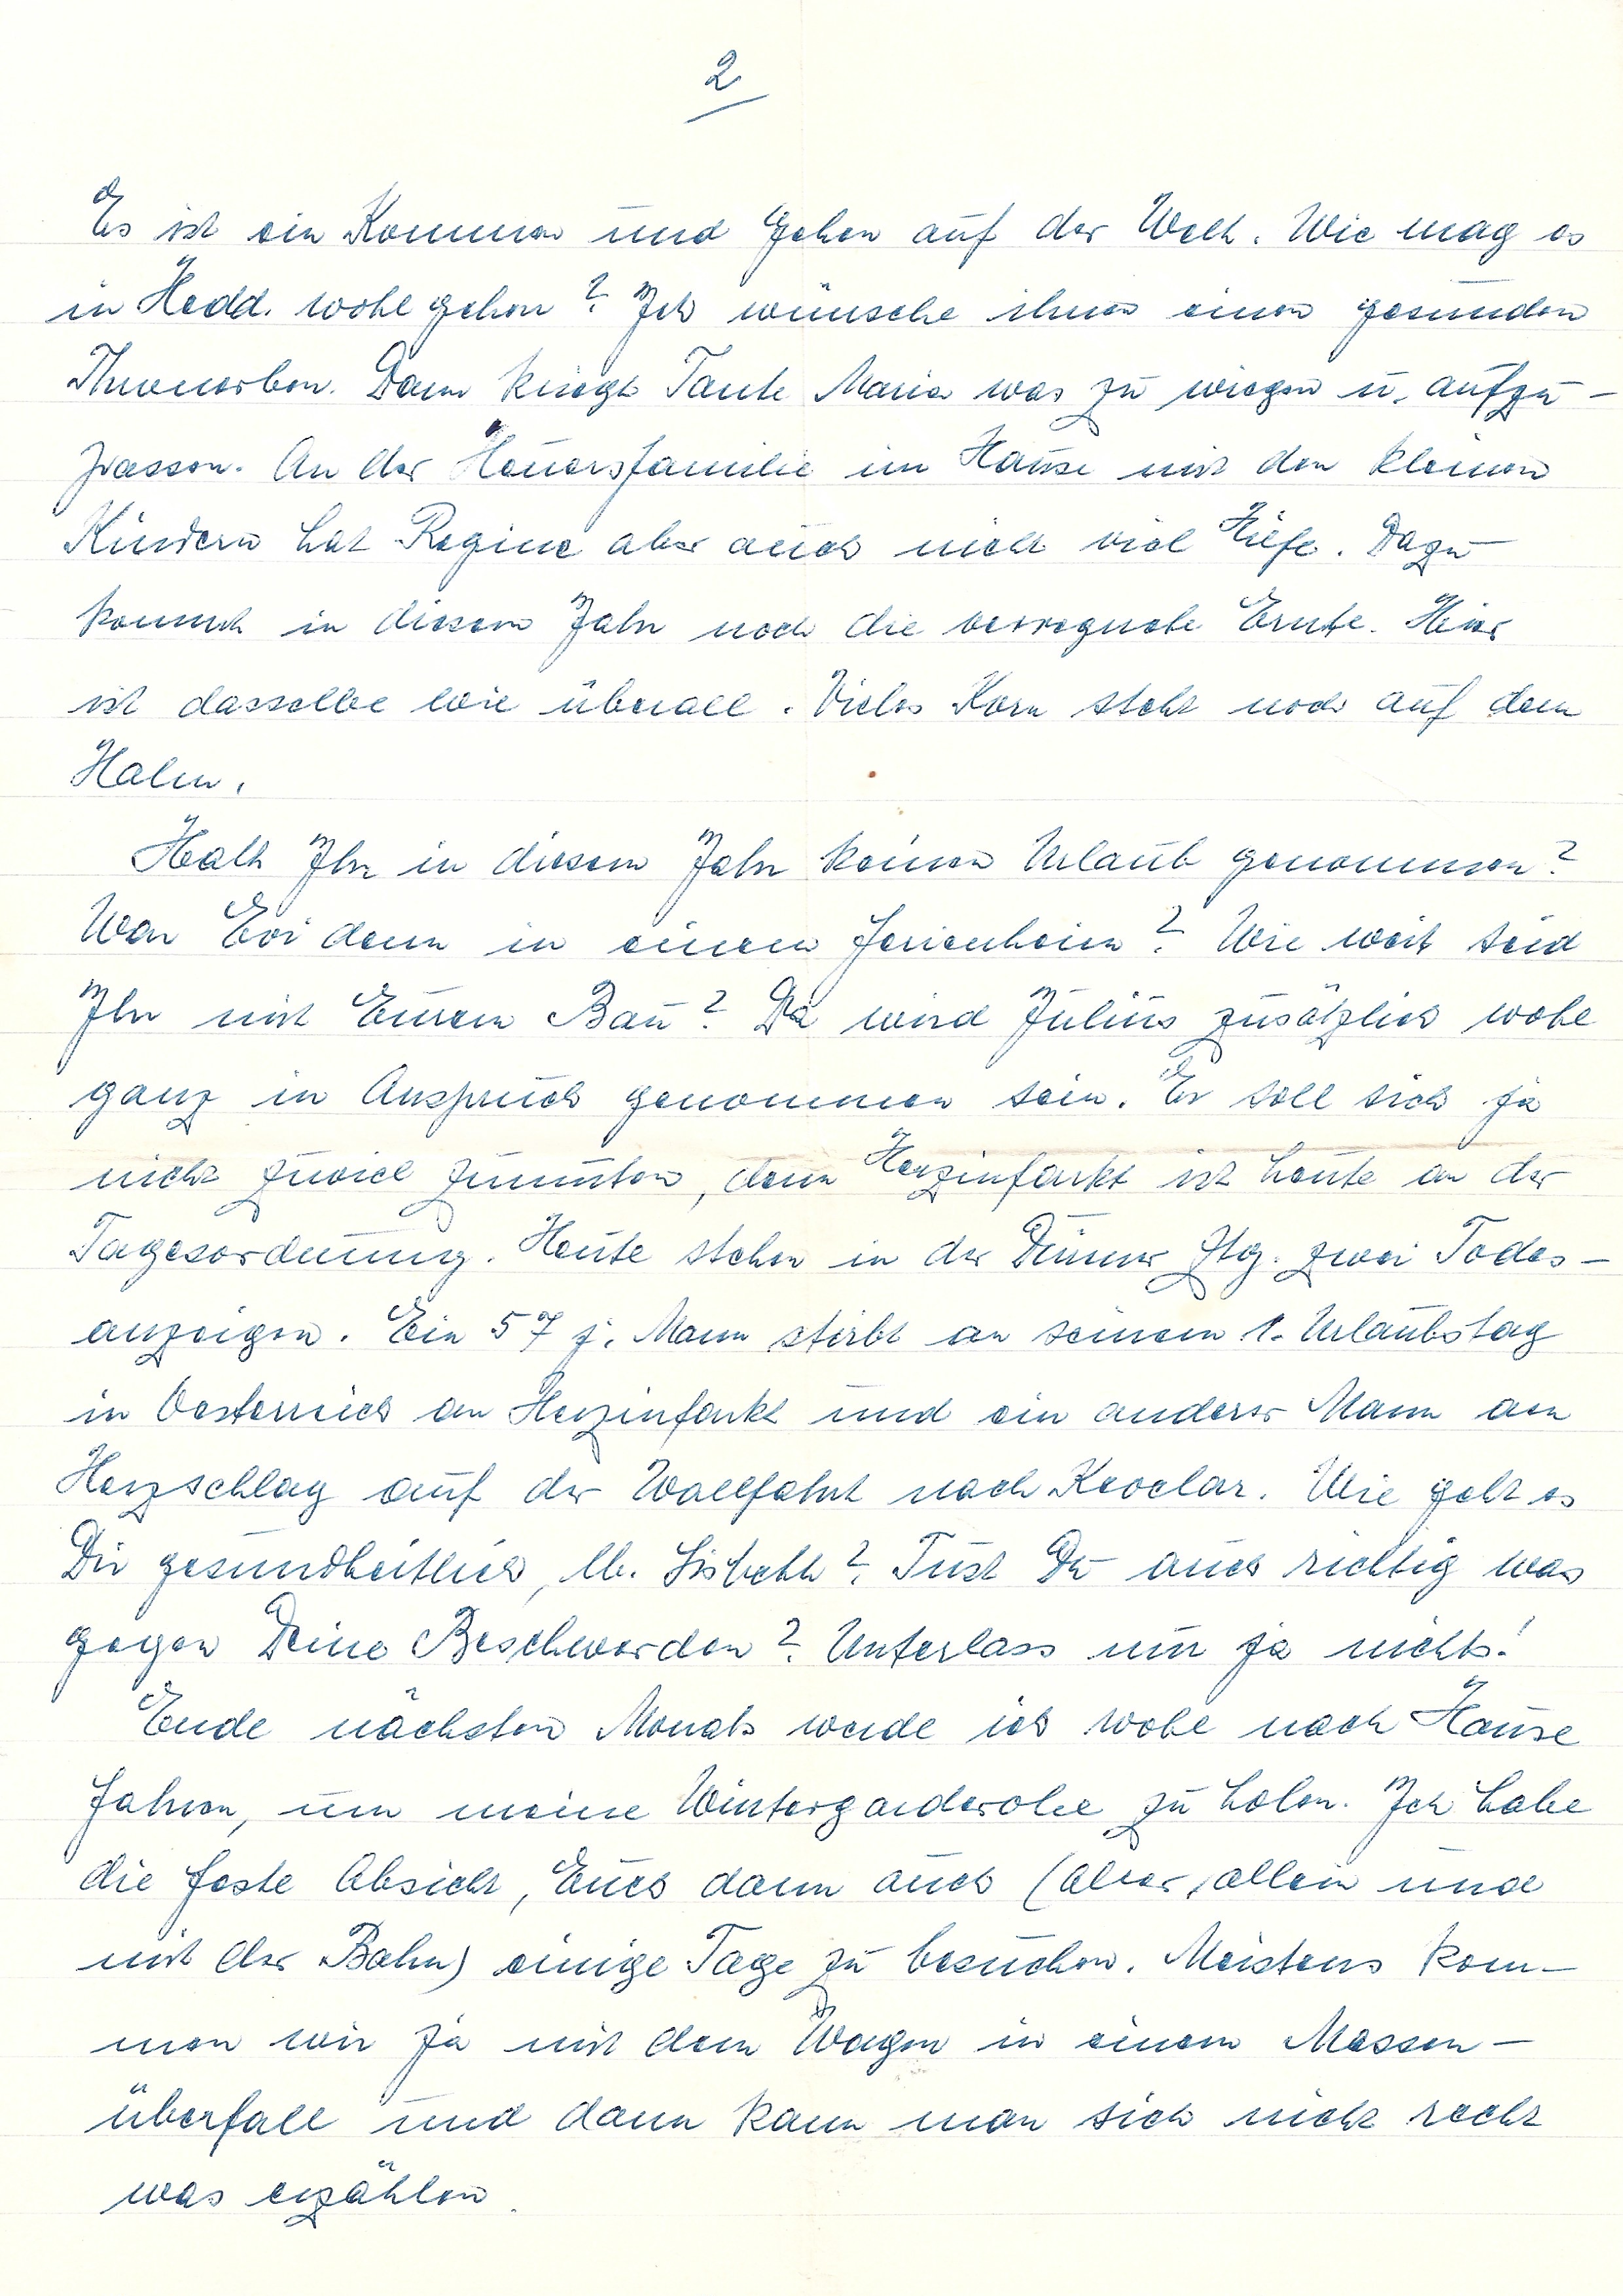 2
Es ist ein Kommen und Gehen auf der Welt. Wie mag es
in Hedd. wohl gehen? Ich wünsche ihnen einen gesunden
Thronerben. Dann kriegt Tante Maria was zu wiegen u. aufzu-
passen. An der Heuersfamilie im Hause mit den kleinen
Kindern hat Regine aber auch nicht viel Hilfe. Dazu
kommt in diesem Jahr noch die verregnete Ernte. Hier
ist dasselbe wie überall. Vieles Korn steht noch auf dem
Halm.
Habt Ihr in diesem Jahr keinen Urlaub genommen?
War Evi denn in einem Ferienheim? Wie weit seid
Ihr mit Eurem Bau? Da wird Julius zusätzlich wohl
ganz in Anspruch genommen sein. Er soll sich ja
nicht zuviel zumuten, denn Herzinfarkt ist heute an der
Tagesordnung. Heute stehen in der Ztg. zwei Todes-
anzeigen. Ein 57 j. Mann stirbt an seinem 1. Urlaubstag
in Oesterreich an Herzinfarkt und ein anderer Mann an
Herzschlag auf der Wallfahrt nach Kevelar. Wie geht es
Dir gesundheitlich, lb. Lisbeth? Tust Du auch richtig was
gegen Deine Beschwerden? Unterlass nur ja nichts!
Ende nächsten Monats werde ich wohl nach Hause
fahren, um meine Wintergarderobe zu holen. Ich habe
die feste Absicht, Euch dann auch (aber allein und
mit der Bahn) einige Tage zu besuchen. Meistens kom-
men wir ja mit dem Wagen in einem Massen-
überfall und dann kann man sich nicht recht
was erzählen.